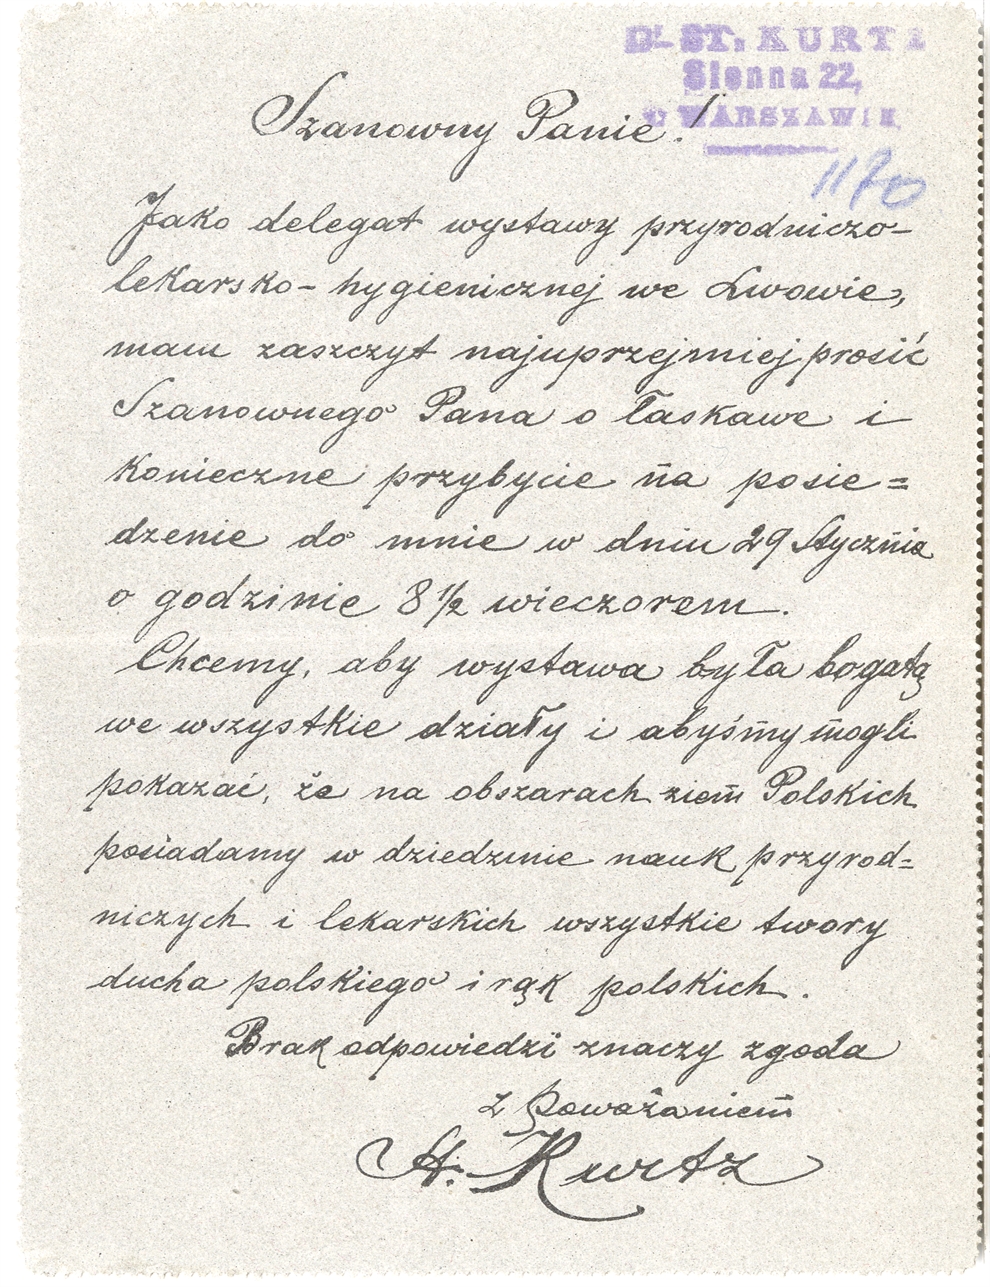 Dr. ST. KURTZ
Sienna 22,
WARSZAWIE
1170
Szanowny Panie!
Jako delegat wystawy przyrodniczo-
lekarsko-hygienicznej we Lwowie,
mam zaszczyt najuprzejmiej prosić
Szanownego Pana o łaskawe i
konieczne przybycie na posie=
dzenie do mnie w dniu 29 Stycznia
o godzinie 8 1/2 wieczorem.
Chcemy, aby wystawa była bogatą
we wszystkie działy i abyśmy mogli
pokazać, że na obszarach ziem Polskich
posiadamy w dziedzinie nauk przyrod=
niczych i lekarskich wszystkie twory
ducha polskiego i rąk polskich.
Brak odpowiedzi znaczy zgoda
z poważaniem
St. Kurtz